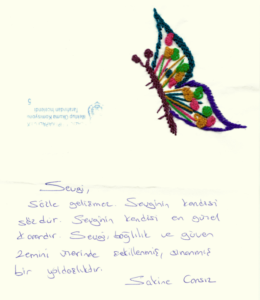 Sevgi,
Sözle gelişmez. Sevginin kendisi
sözdür. Sevginin kendisi en güzel
Sevgi, bağlılık ve güven
zemini üzerinde şekillenmiş, sınanmış
bir yoldaşlıktır.
Sakine Cansız